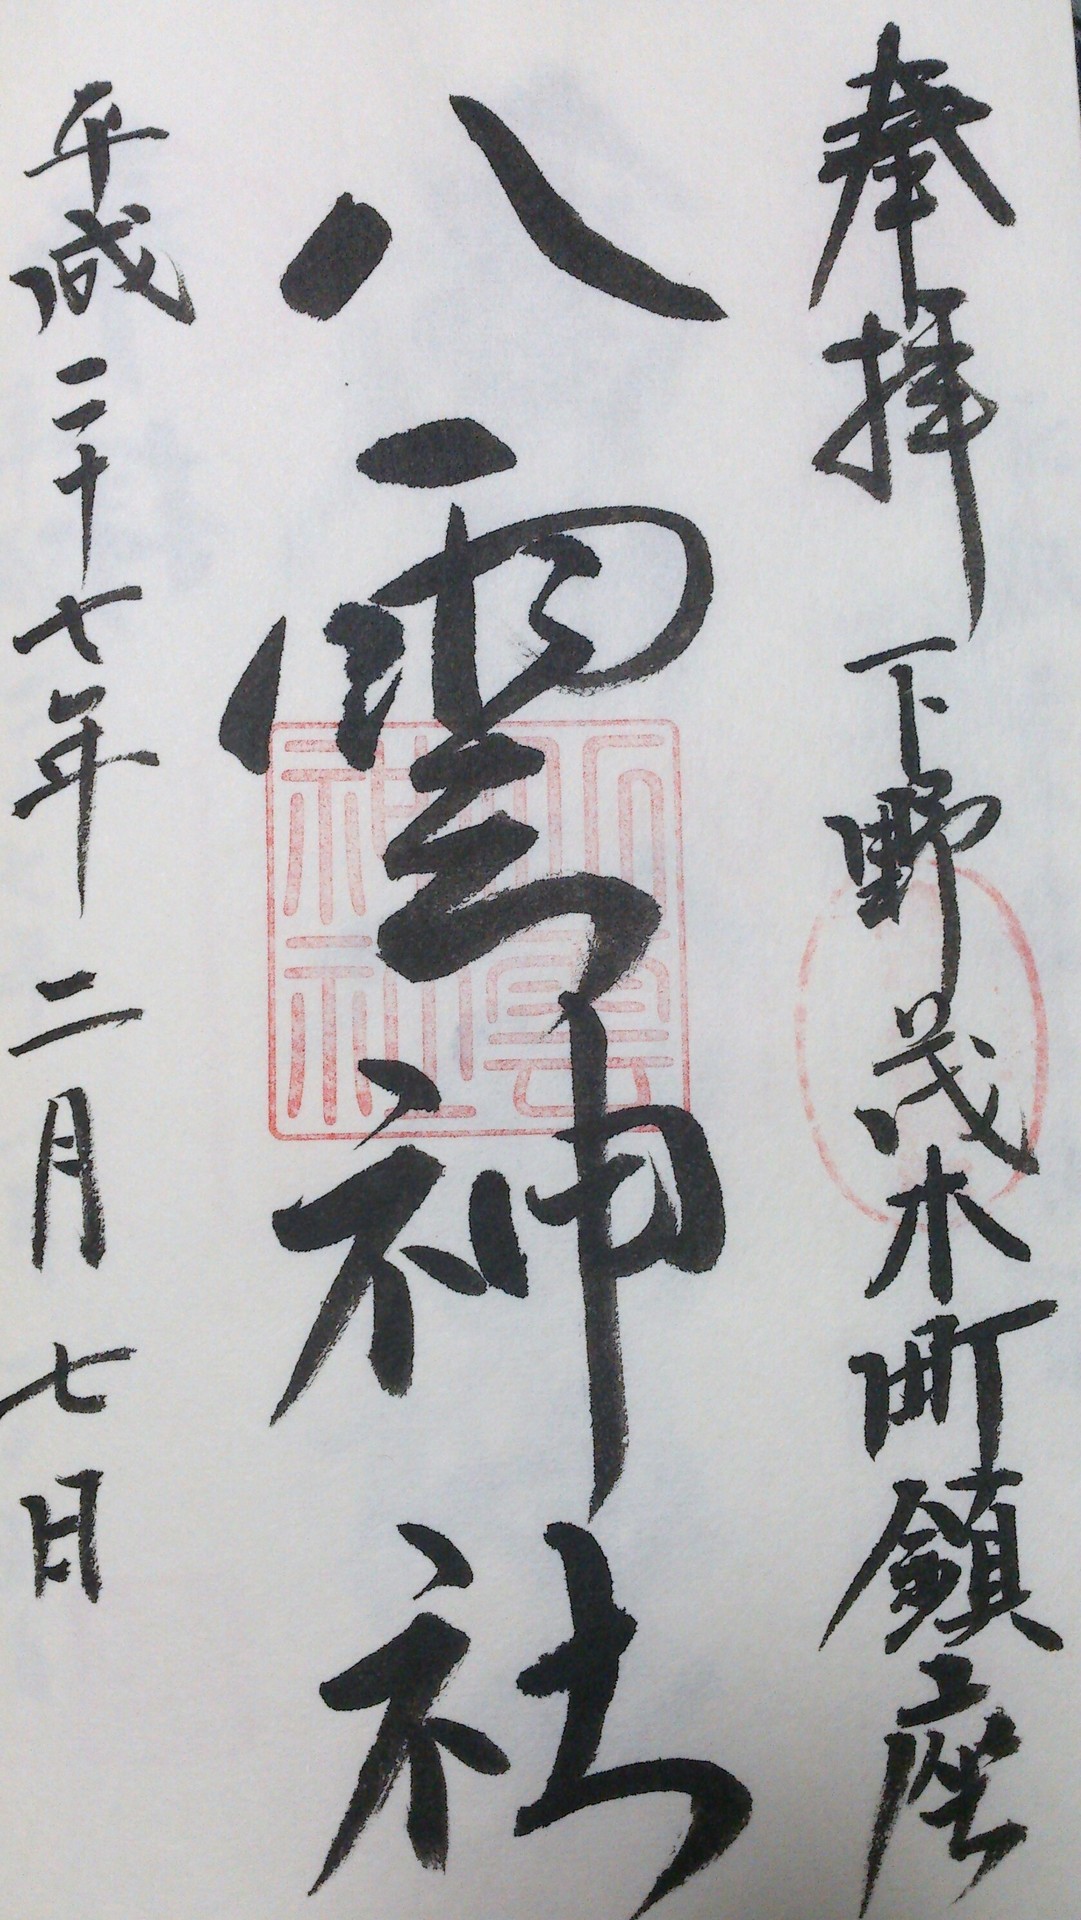 奉拝 下野茂木町鎮座
八雲神社
八雲
神社
平成二十七年二月七日